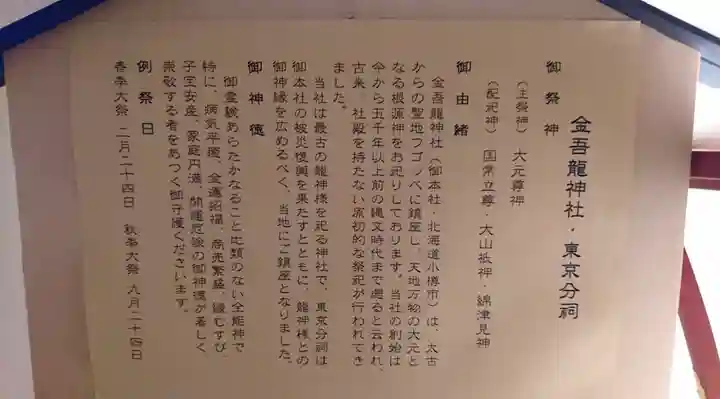 金吾龍神社・東京分祠
御祭神
（主祭神）　大元尊神
（配祀神）　国常立尊・大山祇神・綿津見神
御由緒
金吾龍神社（御本社・北海道小樽市）は、太古
からの聖地フゴッペに鎮座し、天地万物の大元と
なる根源神をお祀りしております。当社の創始は
今から五千年以上前の縄文時代まで遡ると云われ、
古来、社殿を持たない原初的な祭祀が行われてき
ました。
当社は最古の龍神様を祀る神社で、東京分祠は
御本社の被災復興を果たすとともに、龍神様との
御神縁を広めるべく、当地にご鎮座となりました。
御神徳
御霊験あらたかなること比類のない全能神で
特に、病気平癒、金運招福、商売繁盛、縁むすび
子宝安産、家庭円満、開運厄除の御神徳が著しく
崇敬する者をあつく御守護くださいます。
例祭日
春季大祭　二月二十四日　秋季大祭　九月二十四日